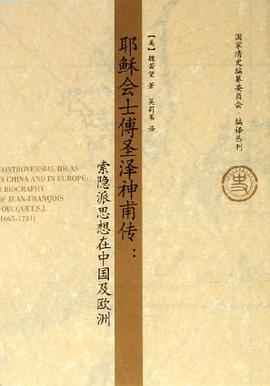 国家清史编纂委员会 编译丛刊
【美】魏若望 著 吴莉苇 译
耶稣会士傅圣泽神甫传：
索隐派思想在中国及欧洲
CONTROVERSIAL IDEAS
IN CHINA AND IN EUROPE:
A BIOGRAPHY
OF JEAN-FRANÇOIS
OUCQUET,S.J.
(1665-1741)